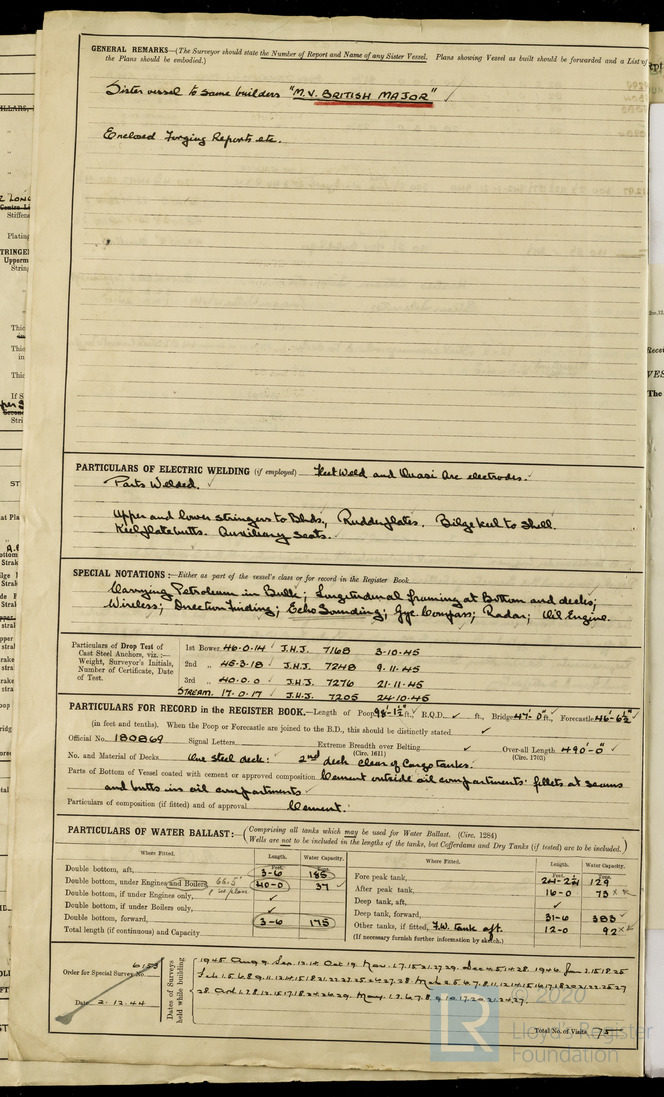 GENERAL REMARKS—(The Surveyor should state the Number of Report and Name of any Sister Vessel. Plans showing Vessel as built should be forwarded and a List of
the Plans should be embodied.)
Sister vessel to same builders "M.V. BRITISH MAJOR" ✓
Enclosed Forging Reports etc.
PARTICULARS OF ELECTRIC WELDING (if employed) Fleet Weld and Quasi Arc electrodes. ✓
Parts Welded. ✓
Upper and lower stringers to Blhds., Rudderplates. Bilge keel to shell.
Keelplate butts. Auxiliary seats. ✓
SPECIAL NOTATIONS:—Either as part of the vessel's class or for record in the Register Book
Carrying Petroleum in Bulk; Longitudinal framing at Bottom and decks;
Wireless; Direction Finding; Echo Sounding; Gyro Compass; Radar; Oil Engine.
Particulars of Drop Test of
Cast Steel Anchors, viz.:—
Weight, Surveyor's Initials,
Number of Certificate, Date
of Test.
1st Bower 46.0.14 ✓ J.H.J. 7168 3-10-45
2nd " 45.3.18 J.H.J. 7248 9.11.45
3rd " 40.0.0 J.H.J. 7276 21.11.45
STREAM. 17.0.17 J.H.J. 7205 24.10.45
PARTICULARS FOR RECORD in the REGISTER BOOK.—Length of Poop 98'-1½" ft., R.Q.D. ✓ ft., Bridge 47'-0" ft., Forecastle 46'-6½"
(in feet and tenths). When the Poop or Forecastle are joined to the B.D., this should be distinctly stated ✓
Official No. 180869 Signal Letters Extreme Breadth over Belting ✓ Over-all Length 490'-0" ✓
(Circ. 1611) (Circ. 1703)
No. and Material of Decks One steel deck: 2nd deck clear of Cargo tanks.
Parts of Bottom of Vessel coated with cement or approved composition Cement outside oil compartments: fillets at seams
and butts in oil compartments ✓
Particulars of composition (if fitted) and of approval Cement.
PARTICULARS OF WATER BALLAST:— (Comprising all tanks which may be used for Water Ballast. (Circ. 1284)
Wells are not to be included in the lengths of the tanks, but Cofferdams and Dry Tanks (if tested) are to be included.)
Where Fitted. Length. Water Capacity.
Feet. Tons.
Double bottom, aft, 3-6 185
Double bottom, under Engines and Boilers, 66.5' see plans 40-0 37 ✓
Double bottom, if under Engines only, ✓
Double bottom, if under Boilers only, ✓
Double bottom, forward, 3-6 175
Total length (if continuous) and Capacity
Where Fitted. Length. Water Capacity.
Feet. Tons.
Fore peak tank, 24-2¼ 129
After peak tank, 16-0 73
Deep tank, aft, ✓
Deep tank, forward, 31-6 383 ✓
Other tanks, if fitted, F.W. tank aft. 12-0 92
(If necessary furnish further information by sketch.)
Order for Special Survey No. 6153
Date 2.12.44
Dates of Surveys
held while building
Total No. of Visits 75
2020
LR
Lloyd's Register
Foundation